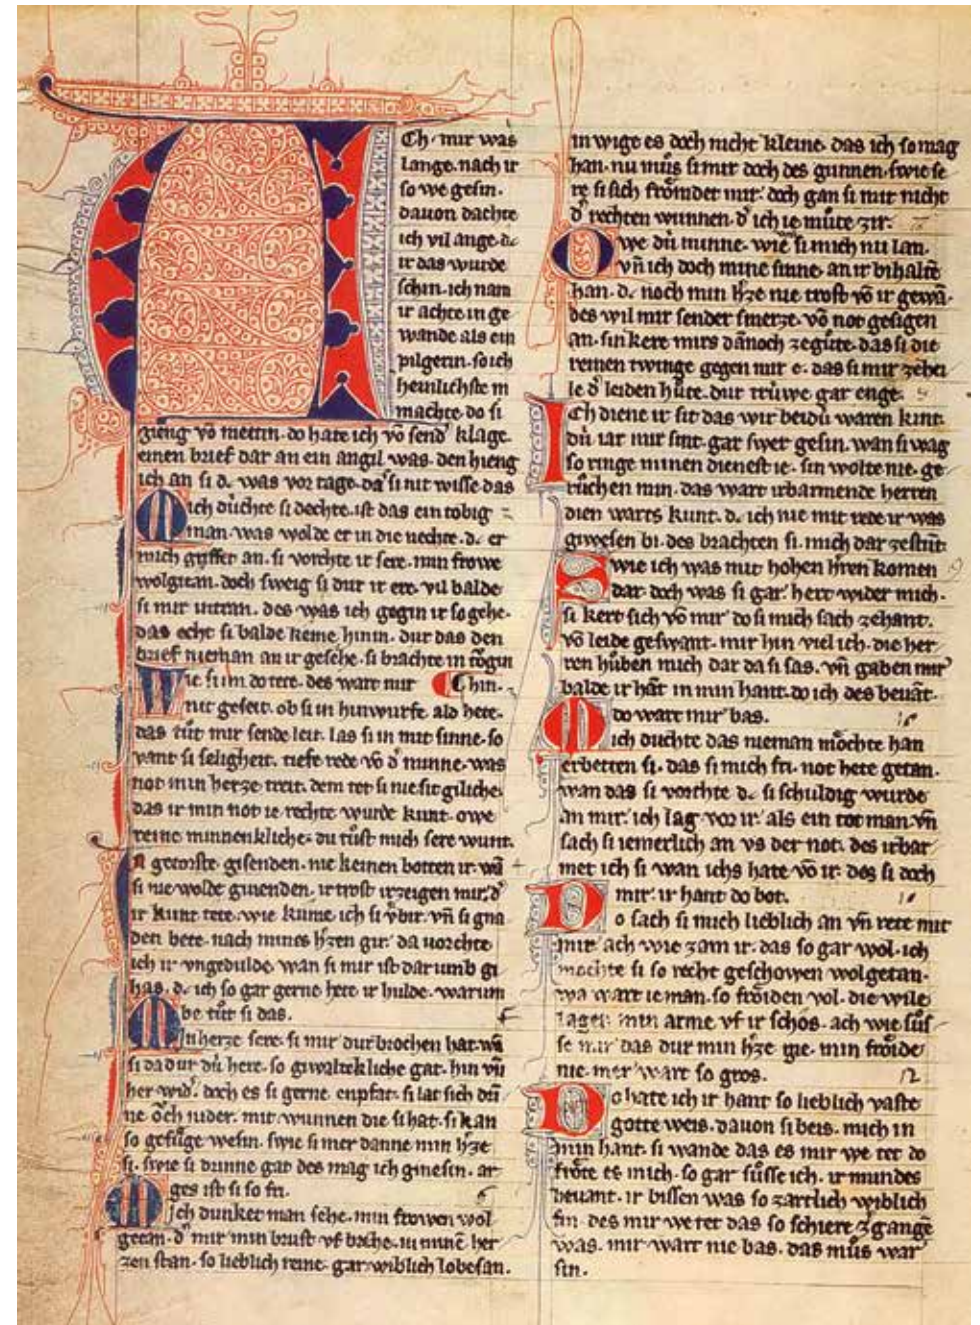 Ch mir was
lange. nach ir
so we gesin.
dauon dachte
ich vil ange. dc
ir das wurde
schin. ich nam
ir achte in ge
wande als ein
pilgerin. so ich
heinlichste in
machte. do si
gieng võ mettin. do hate ich võ send' klage.
einen brief dar an ein angil was. den hieng
ich an si. dc was vor tage. da si nit wisse das
Mich dùchte si dechte. ist das ein tobig
man. was wolde er in die nechte. dc er
mich griffet an. si vorchte ir sere. min frowe
wolgitan. doch sweig si dur ir ere. vil balde
si mir intran. des was ich gegin ir so gehe.
das echt si balde keme hinin. dur das den
brief nieman an ir gesehe. si brachte in tögin
Wie si im do tete. des wart mir Chin.
nit geseit. ob si in hinwurfe ald hete.
das tůt mir sende leit. las si in mit sinne. so
vant si selighеit. tiefe rede võ d' minne. was
not min herze treit. dem tet si nie sit giliche.
das ir min not ie rechte wurde kunt. owe
reine minnenkliche. du tůst mich sere wunt.
getorste gisenden. nie keinen botten ir. wã
si nie wolde giuenden. ir trost irzeigen mir. d'
ir kunt tete. wie kume ich si v'bir. vñ si gna
den bete. nach mines h'zen gir. da vorchte
ich ir vngedulde. wan si mir ist dar umb gi
has. dc ich so gar gerne hete ir hulde. warum
be tůt si das.
Min herze sere. si mir dur brochen hat. wã
si da dur dù here. so giwalteкliche gat. hin vñ
her wid'. doch es si gerne enpfat. si lat sich dũ
ne öch nider. mit wunnen die si hat. si kan
so gefůge wesin. swie si mer danne min h'ze
si. swie si drinne gat des mag ich ginesin. ar
ges ist si so fri.
Mich dunket man sehe. min frowen wol
getan. d' mir min brust vf breche. in minẽ her
zen stan. so lieblich reine. gar wiblich lobesan.
in wige es doch nicht kleine. das ich so mag
han. nu můs si mir doch des gunnen. swie se
re si sich frömdet mir. doch gan si mir nicht
d' rechten wunnen. d' ich ie můte zir.
Owe dù minne. wie si mich nu lan.
vñ ich doch mine sinne. an ir bihaltẽ
han. dc noch min h'ze nie trost võ ir gewã.
des wil mir sender smerze. võ not gesigen
an. sin kere mirs dãnoch zegůte. das si die
reinen twinge gegen mir e. das si mir zehei
le d' leiden hůte. dur trùwe gar enge.
Ich diene ir sit das wir beidù waren kint.
dù iar mir sint. gar swer gesin. wan si wag
so ringe minen dienest ie. sin wolte nie. ge
růchen min. das wart irbarmende herren
dien warts kunt. dc ich nie mit rede ir was
giwesen bi. des brachten si. mich dar zestũt.
Swie ich was mit hohen h'ren komen
dar. doch was si gar hert wider mich.
si kert sich võ mir do si mich sach zehant.
võ leide geswant. mir hin viel ich. die her
ren hůben mich dar da si sas. vñ gaben mir
balde ir hãt in min hant. do ich des bevãt.
do wart mir bas.
Mich duchte das nieman möchte han
erbetten si. das si mich fri. not hete getan.
wan das si vorchte dc si schuldig wurde
an mir. ich lag vor ir als ein tot man. vñ
sach si iemerlich an vs der not. des irbar
met ich si wan ichs hate võ ir. des si doch
mir. ir hant do bot.
Do sach si mich lieblich an vñ rete mit
mir. ach wie zam ir. das so gar wol. ich
mochte si so rechte geschowen wolgetan.
wa wart ie man. so fröiden vol. die wile
lagen min arme vf ir schos. ach wie sůs
se mir das dur min h'ze gie. min fröide
nie. mer wart so gros. 12
Do hate ich ir hant so lieblich vaste
gotte weis. dauon si beis. mich in
min hant. si wande das es mir we tet do
fröte es mich. so gar sůsse ich. ir mundes
bevant. ir bissen was so zartlich wiblich
fin. des mir we tet das so schiere z'gangẽ
was. mir wart nie bas. das můs war
sin.